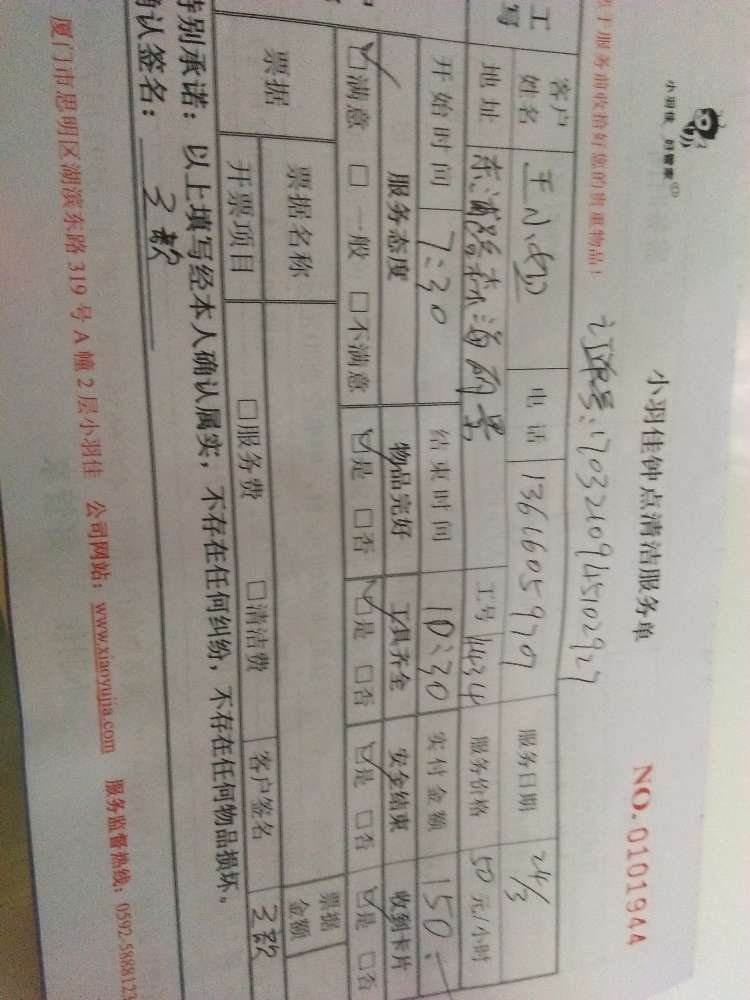 小羽佳 好管家
小羽佳钟点清洁服务单
NO.0101944
于服务前收拾好您的贵重物品!
订单号:170321094510292
客户姓名 王小 电话 13616059707 服务日期 24/3
地址 东浦路森海丽景 工号 1434 服务价格 50元/小时
开始时间 7:30 结束时间 10:30 实付金额 150
服务态度 物品完好 工具齐全 安全结束 收到卡片
☑满意 □一般 □不满意 ☑是 □否 ☑是 □否 ☑是 □否 ☑是 □否
票据 票据名称 票据金额
开票项目 □服务费 □清洁费 客户签名
特别承诺:以上填写经本人确认属实,不存在任何纠纷,不存在任何物品损坏。
确认签名:
厦门市思明区湖滨东路 319 号 A 幢 2 层小羽佳 公司网站:www.xiaoyujia.com 服务监督热线:0592-5888123